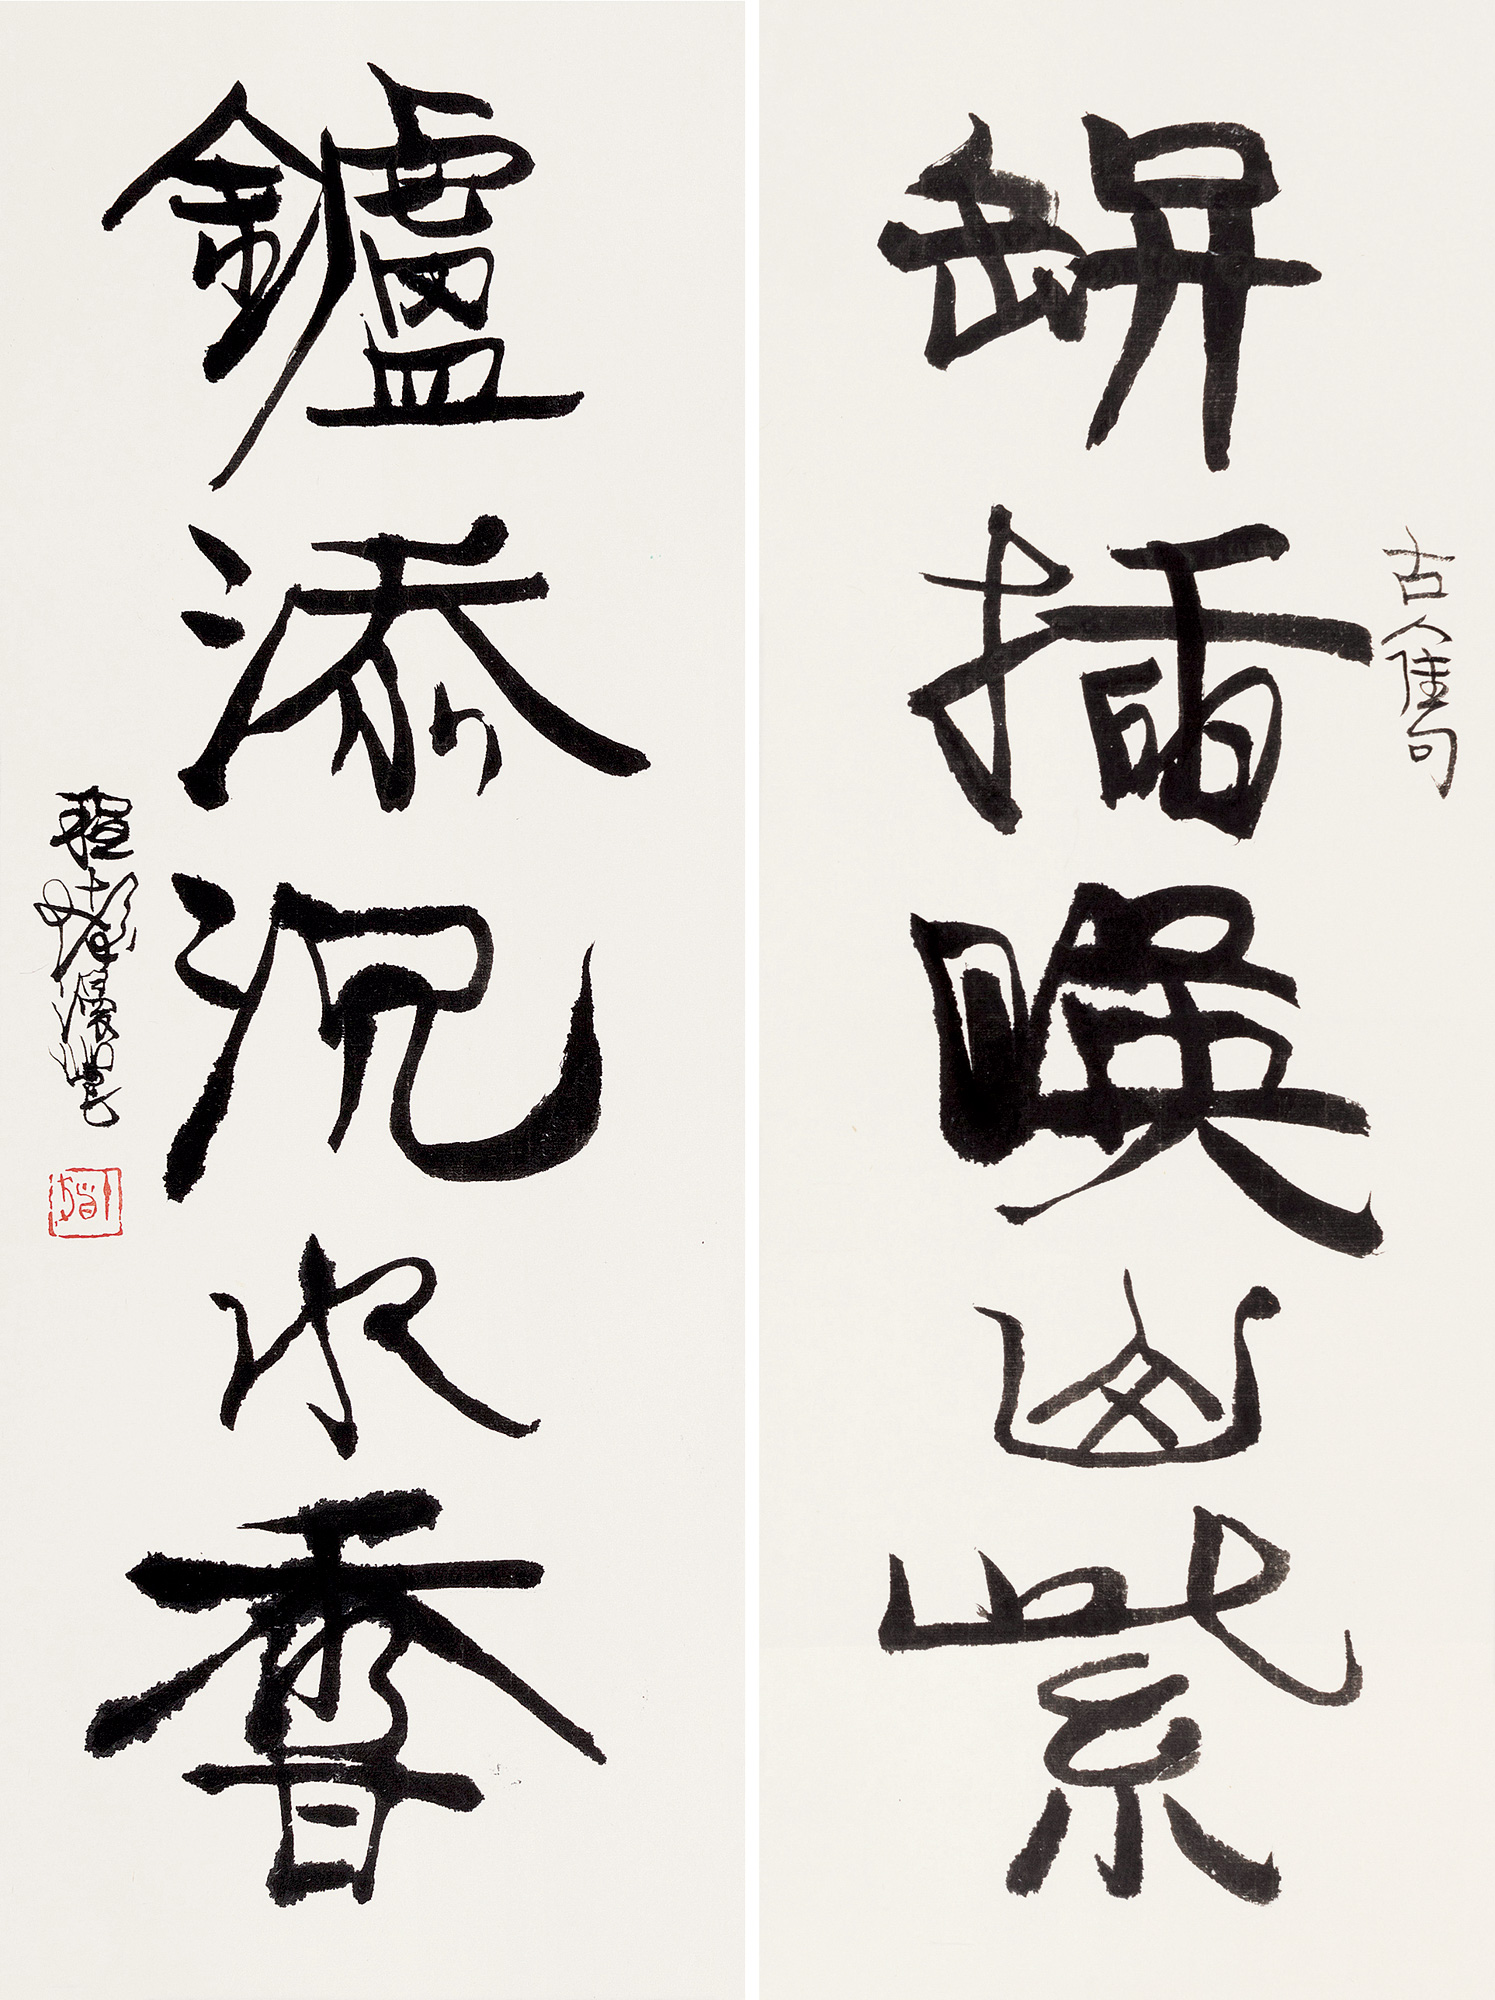 缾插暎山紫
古人佳句
鑪添沉水香
程十髮漫笔